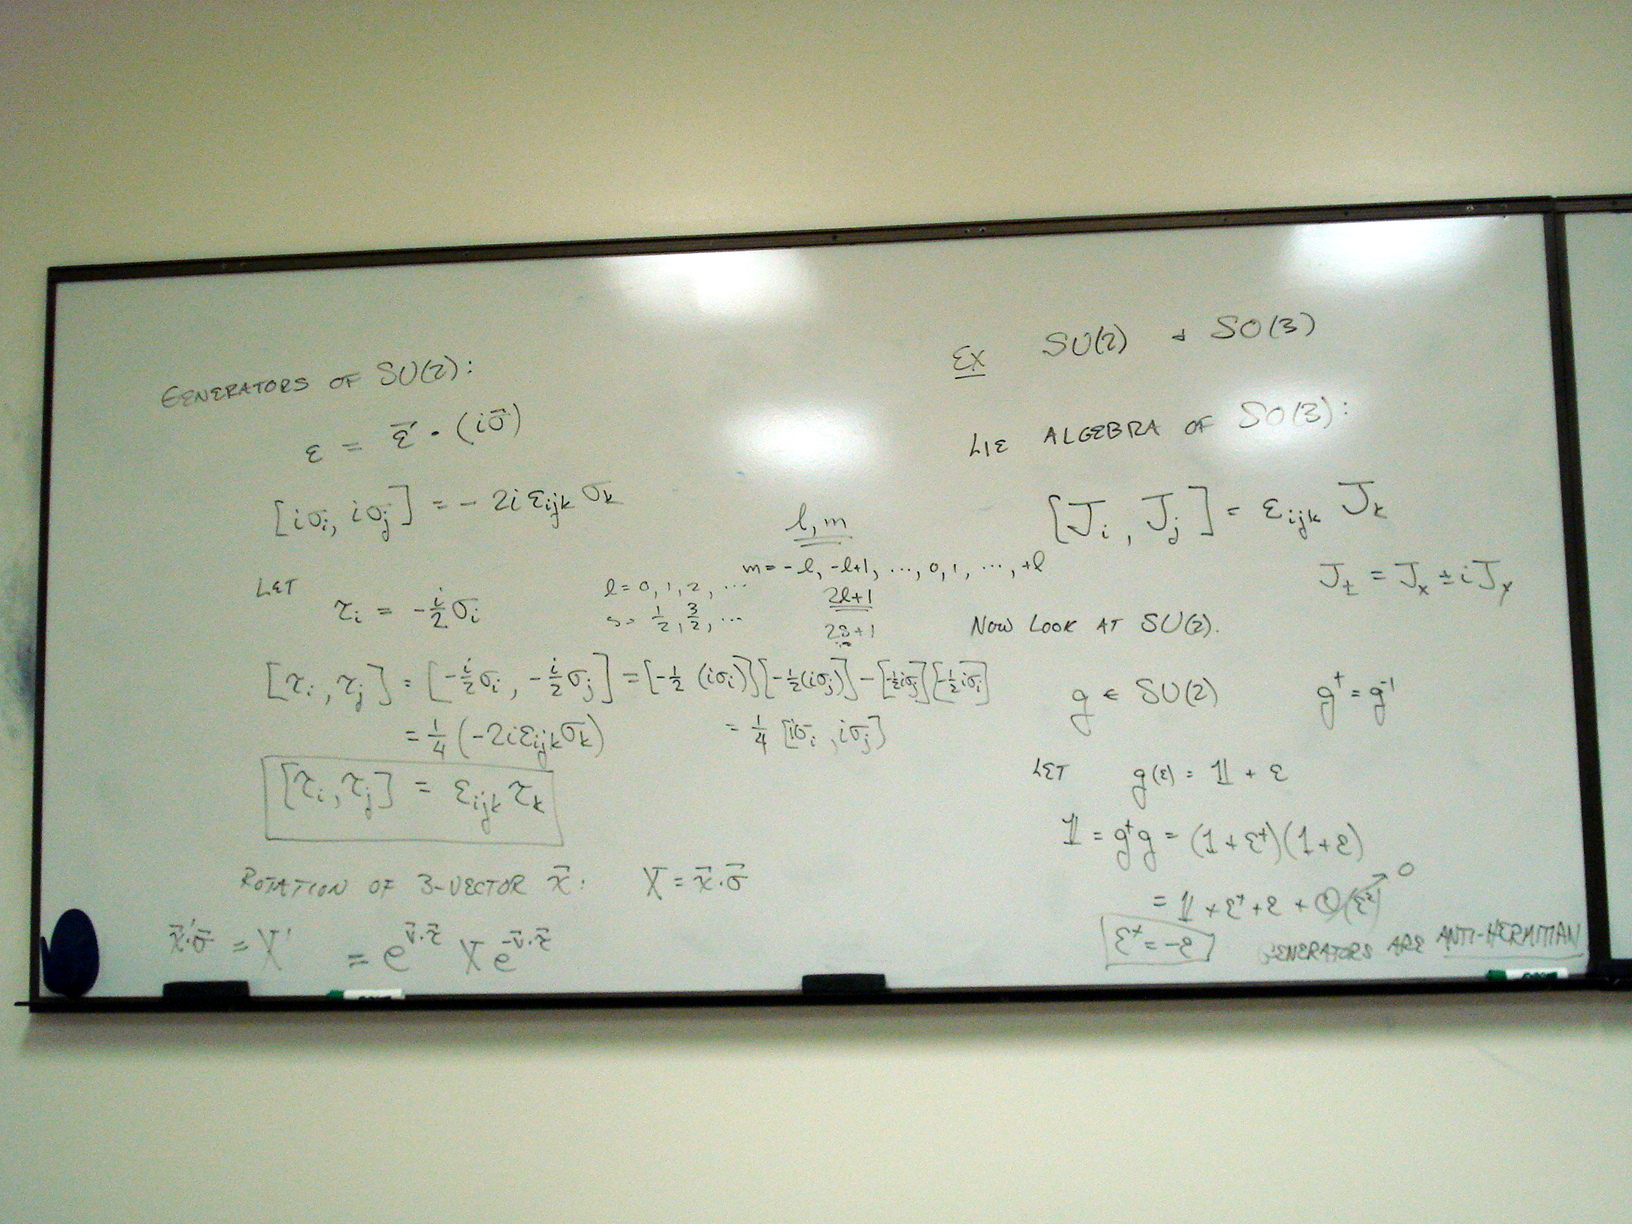 GENERATORS OF SU(2):
ε = ε⃗ · (iσ⃗)
[iσᵢ, iσⱼ] = - 2i εᵢⱼₖ σₖ
LET
τᵢ = -i/2 σᵢ
[τᵢ, τⱼ] = [-i/2 σᵢ, -i/2 σⱼ] = [-1/2 (iσᵢ)][-1/2 (iσⱼ)] - [-1/2 iσⱼ][-1/2 iσᵢ]
= 1/4 (-2iεᵢⱼₖσₖ)
= 1/4 [iσᵢ, iσⱼ]
[τᵢ, τⱼ] = εᵢⱼₖ τₖ
ROTATION OF 3-VECTOR x⃗: X = x⃗·σ⃗
x⃗'·σ⃗ = X' = e^{v⃗·τ⃗} X e^{-v⃗·τ⃗}
l, m
m = -l, -l+1, ..., 0, 1, ..., +l
l = 0, 1, 2, ...
s = 1/2, 3/2, ...
2l+1
2s+1
EX SU(2) & SO(3)
LIE ALGEBRA OF SO(3):
[Jᵢ, Jⱼ] = εᵢⱼₖ Jₖ
J± = Jₓ ± i Jᵧ
NOW LOOK AT SU(2).
g ∈ SU(2) g† = g⁻¹
LET g(ε) = 𝟙 + ε
𝟙 = g†g = (1 + ε†)(1 + ε)
= 𝟙 + ε† + ε + O(ε²) → 0
ε† = -ε GENERATORS ARE ANTI-HERMITIAN